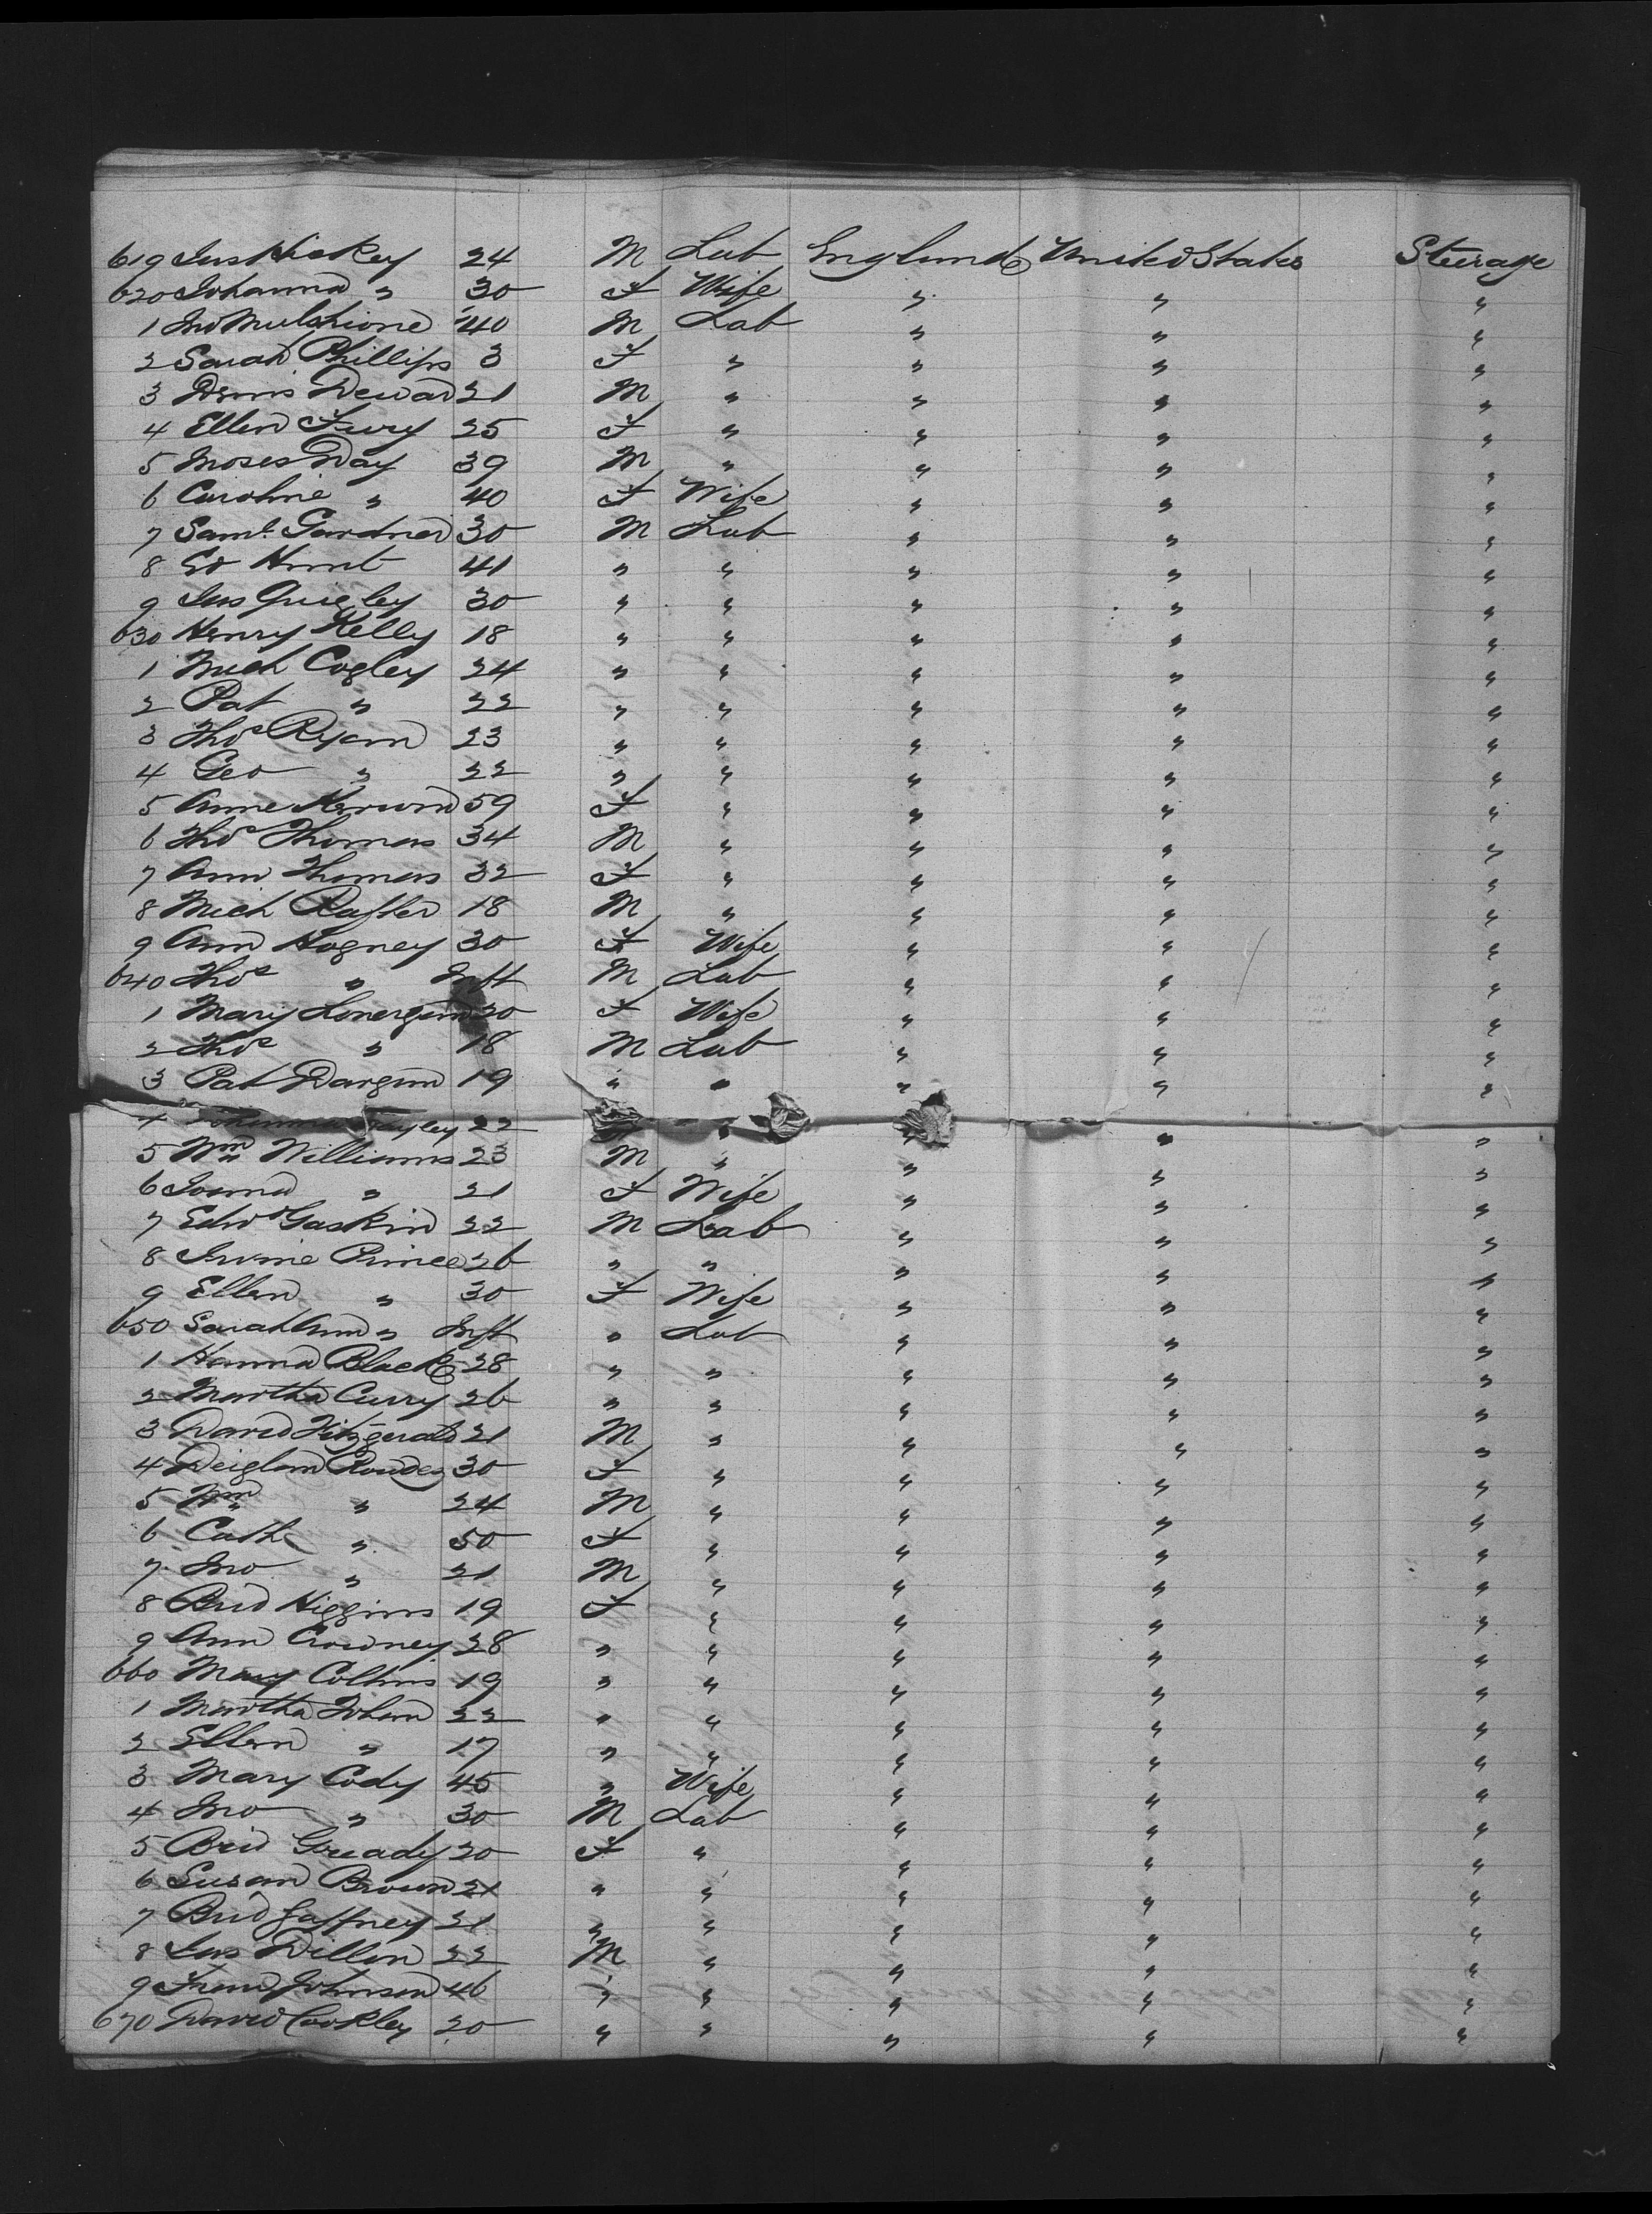 619 Jas Hickey 24 M Lab England United States Steerage
620 Johanna " 30 F Wife " " "
1 Jno 40 M Lab " " "
2 Sarah Phillips 3 F " " " "
3 Dennis 21 M " " " "
4 Ellen Fury 25 F " " " "
5 Moses Day 39 M " " " "
6 Caroline " 40 F Wife " " "
7 Saml Gardner 30 M Lab " " "
8 Ed Hunt 41 " " " " "
9 Jas Quigley 30 " " " " "
630 Henry Kelly 18 " " " " "
1 Mich Cogley 24 " " " " "
2 Pat " 22 " " " " "
3 Thos Ryan 23 " " " " "
4 Geo " 22 " " " " "
5 Anne Kerwin 59 F " " " "
6 Thos Thomas 34 M " " " "
7 Ann Thomas 32 F " " " "
8 Mich Rafter 18 M " " " "
9 Ann Hogney 30 F Wife " " "
640 Thos " Inft M Lab " " "
1 Mary Lonergan 20 F Wife " " "
2 Thos " 18 M Lab " " "
3 Pat Dargan 19 " " " " "
4 22 " " " "
5 Wm Williams 23 M " " " "
6 Joanna " 21 F Wife " " "
7 Edwd Gaskin 22 M Lab " " "
8 Prince 26 " " " " "
9 Ellen " 30 F Wife " " "
650 Sarah Ann " Inft " Lab " " "
1 Hanna Black 28 " " " " "
2 Martha Curry 26 " " " " "
3 David Fitzgerald 21 M " " " "
4 30 F " " " "
5 Wm " 24 M " " " "
6 Cath " 50 F " " " "
7 Jno " 21 M " " " "
8 Brid Higgins 19 F " " " "
9 Ann Crowney 28 " " " " "
660 Mary Collins 19 " " " " "
1 Martha 22 " " " " "
2 Ellen " 17 " " " " "
3 Mary Cody 45 " Wife " " "
4 Jno " 30 M Lab " " "
5 Brid Gready 20 F " " " "
6 Susan Brown 21 " " " " "
7 Brid Gaffney 21 " " " " "
8 Jas Dillon 22 M " " " "
9 Johnson 46 " " " " "
670 David Cookley 20 " " " " "